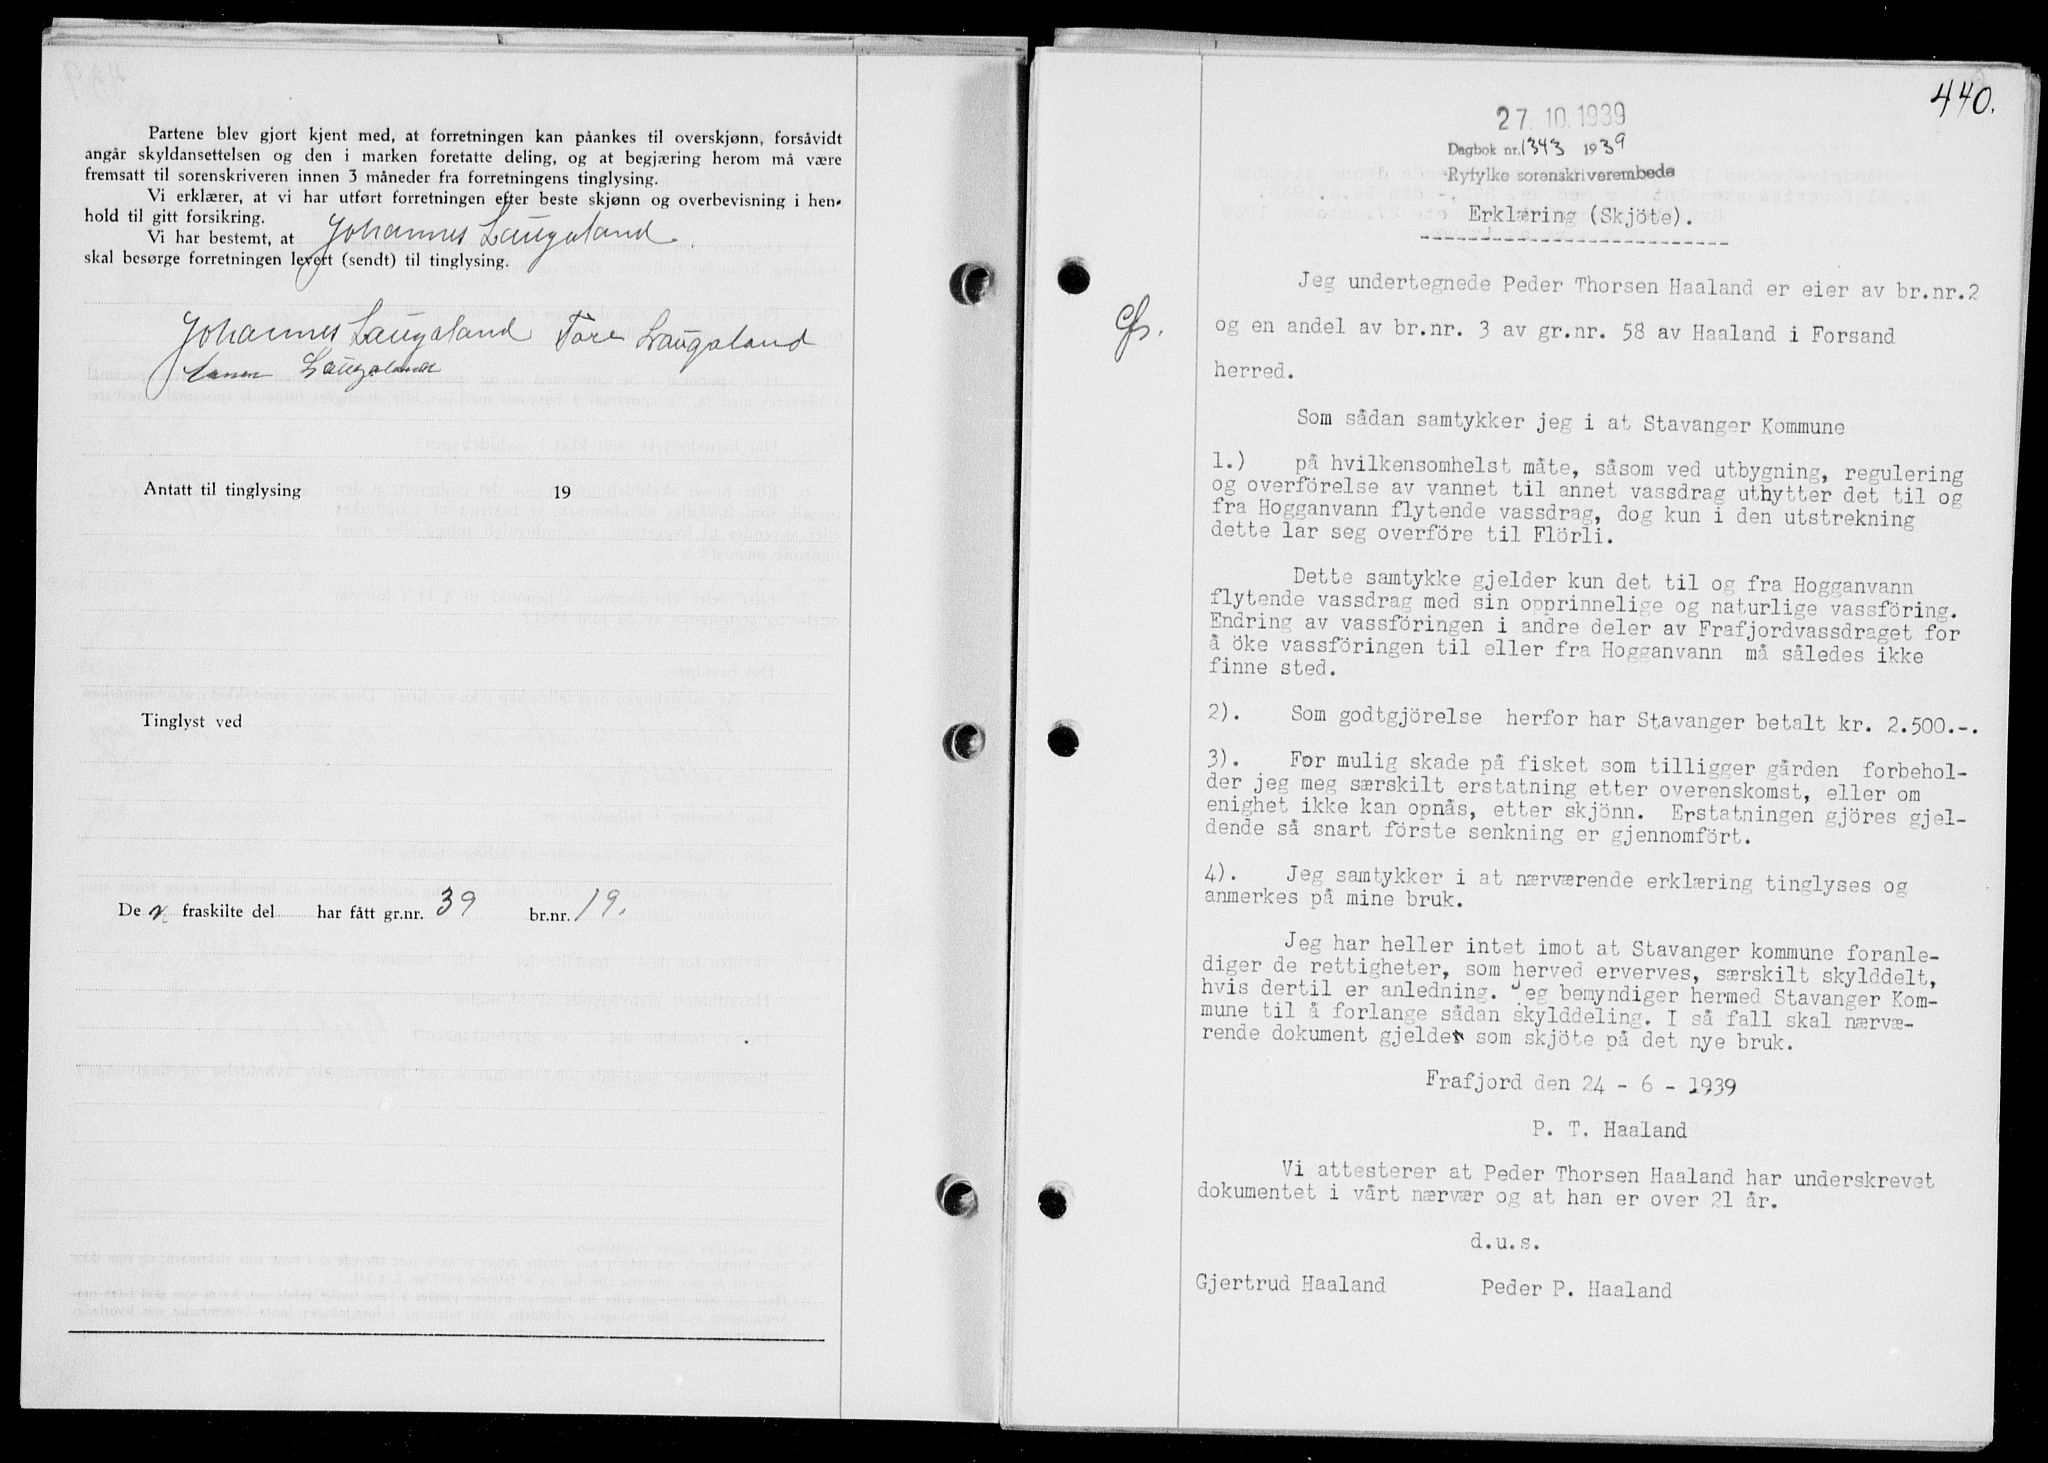 Partene blev gjort kjent med, at forretningen kan påankes til overskjønn, forsåvidt
angår skyldansettelsen og den i marken foretatte deling, og at begjæring herom må være
fremsatt til sorenskriveren innen 3 måneder fra forretningens tinglysing.
Vi erklærer, at vi har utført forretningen efter beste skjønn og overbevisning i hen-
hold til gitt forsikring.
Vi har bestemt, at Johannes Laugaland
skal besørge forretningen levert (sendt) til tinglysing.
Johannes Laugaland Tore Laugaland
Laugaland
Antatt til tinglysing 19
Tinglyst ved
De n fraskilte del har fått gr.nr. 39 br.nr. 19.
440.
27. 10. 1939
Dagbok nr. 1343 1939
Ryfylke sorenskriverembede
Erklæring (Skjöte).
Jeg undertegnede Peder Thorsen Haaland er eier av br.nr.2
og en andel av br.nr. 3 av gr.nr. 58 av Haaland i Forsand
herred.
Som sådan samtykker jeg i at Stavanger Kommune
1.) på hvilkensomhelst måte, såsom ved utbygning, regulering
og overförelse av vannet til annet vassdrag utnytter det til og
fra Hogganvann flytende vassdrag, dog kun i den utstrekning
dette lar seg overföre til Flörli.
Dette samtykke gjelder kun det til og fra Hogganvann
flytende vassdrag med sin opprinnelige og naturlige vassföring.
Endring av vassföringen i andre deler av Frafjordvassdraget for
å öke vassföringen til eller fra Hogganvann må således ikke
finne sted.
2). Som godtgjörelse herfor har Stavanger betalt kr. 2.500.-.
3). For mulig skade på fisket som tilligger gården forbehol-
der jeg meg særskilt erstatning etter overenskomst, eller om
enighet ikke kan opnås, etter skjönn. Erstatningen gjöres gjel-
dende så snart förste senkning er gjennomfört.
4). Jeg samtykker i at nærværende erklæring tinglyses og
anmerkes på mine bruk.
Jeg har heller intet imot at Stavanger kommune foranle-
diger de rettigheter, som herved erverves, særskilt skylddelt,
hvis dertil er anledning. Jeg bemyndiger hermed Stavanger Kom-
mune til å forlange sådan skylddeling. I så fall skal nærvæ-
rende dokument gjelder som skjöte på det nye bruk.
Frafjord den 24 - 6 - 1939
P. T. Haaland
Vi attesterer at Peder Thorsen Haaland har underskrevet
dokumentet i vårt nærvær og at han er over 21 år.
d.u.s.
Gjertrud Haaland Peder P. Haaland